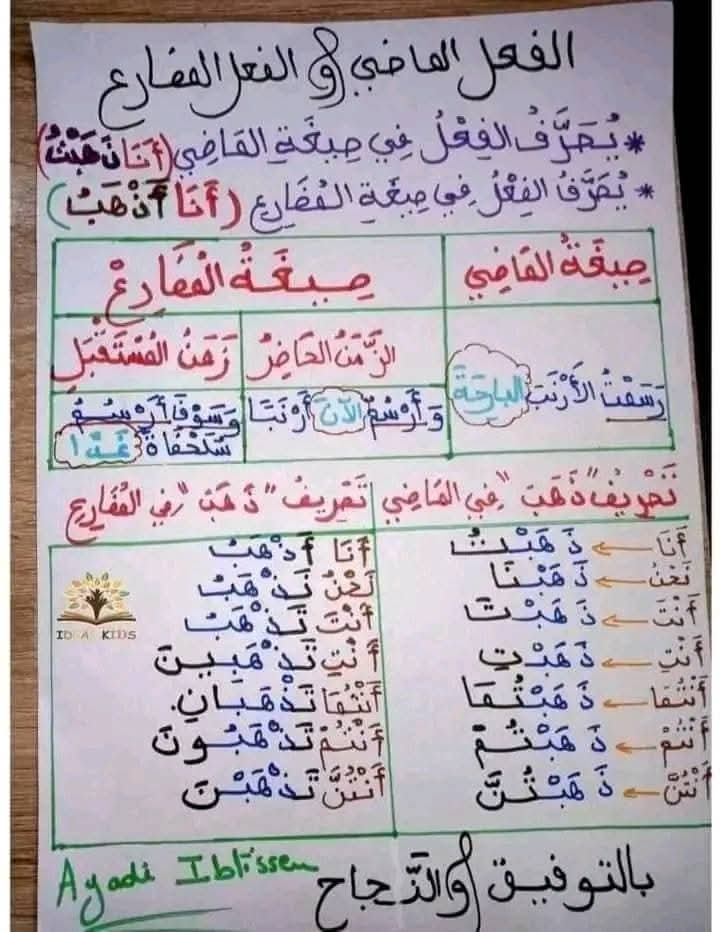 الفعل الماضي و الفعل المضارع
* يُصَرَّفُ الفِعْلُ فِي صِيغَةِ المَاضِي (أَنَا ذَهَبْتُ)
* يُصَرَّفُ الفِعْلُ فِي صِيغَةِ المُضَارِعِ (أَنَا أَذْهَبُ)
صِيغَةُ المَاضِي
صِيغَةُ المُضَارِعْ
الزَّمَنُ الحَاضِرُ
زَمَنُ المُسْتَقْبَلِ
رَسَمْتُ الأَرْنَبَ البارِحَةَ
وَأَرْسُمُ الآنَ أَرْنَبًا
وَسَوْفَ أَرْسُمُ
سُلَحْفَاةً غَدًا
تَصْرِيفُ "ذَهَبَ" فِي المَاضِي
تَصْرِيفُ "ذَهَبَ" فِي المُضَارِعِ
أَنَا ← ذَهَبْتُ
نَحْنُ ← ذَهَبْنَا
أَنْتَ ← ذَهَبْتَ
أَنْتِ ← ذَهَبْتِ
أَنْتُمَا ← ذَهَبْتُمَا
أَنْتُمْ ← ذَهَبْتُمْ
أَنْتُنَّ ← ذَهَبْتُنَّ
أَنَا أَذْهَبُ
نَحْنُ نَذْهَبُ
أَنْتَ تَذْهَبُ
أَنْتِ تَذْهَبِينَ
أَنْتُمَا تَذْهَبَانِ.
أَنْتُمْ تَذْهَبُونَ
أَنْتُنَّ تَذْهَبْنَ
IDEA KIDS
بالتوفيق والنَّجاح
Ayadi Iblissem